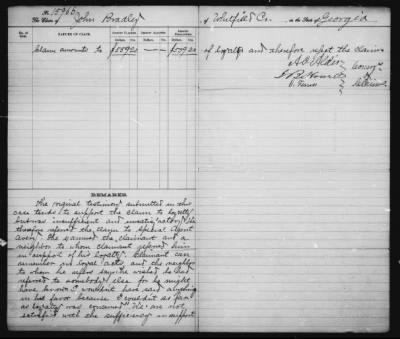 No. 15965
The Claim of John Bradley of Whitfield Co. in the State of Georgia
NATURE OF CLAIM.
Claim amounts to $559.20 — — $559.20
of loyalty and therefore reject the claim
A. O. Aldis
J. B. Howell
O. Ferriss
Comrs
of
Claims.
REMARKS.
The original testimony submitted in this
case tends to support the claim to loyalty
but was insufficient and unsatisfactory. We
therefore referred the claim to Special Agent
Avery. He examined the claimant and a
neighbor to whom claimant referred him
in support of his loyalty. Claimant can
remember no loyal acts, and the neighbor
to whom he refers says "he wished he had
referred to somebody else for he might
have known I wouldn't have said anything
in his favor because I couldn't as far
as loyalty was concerned." We are not
satisfied with the sufficiency in support